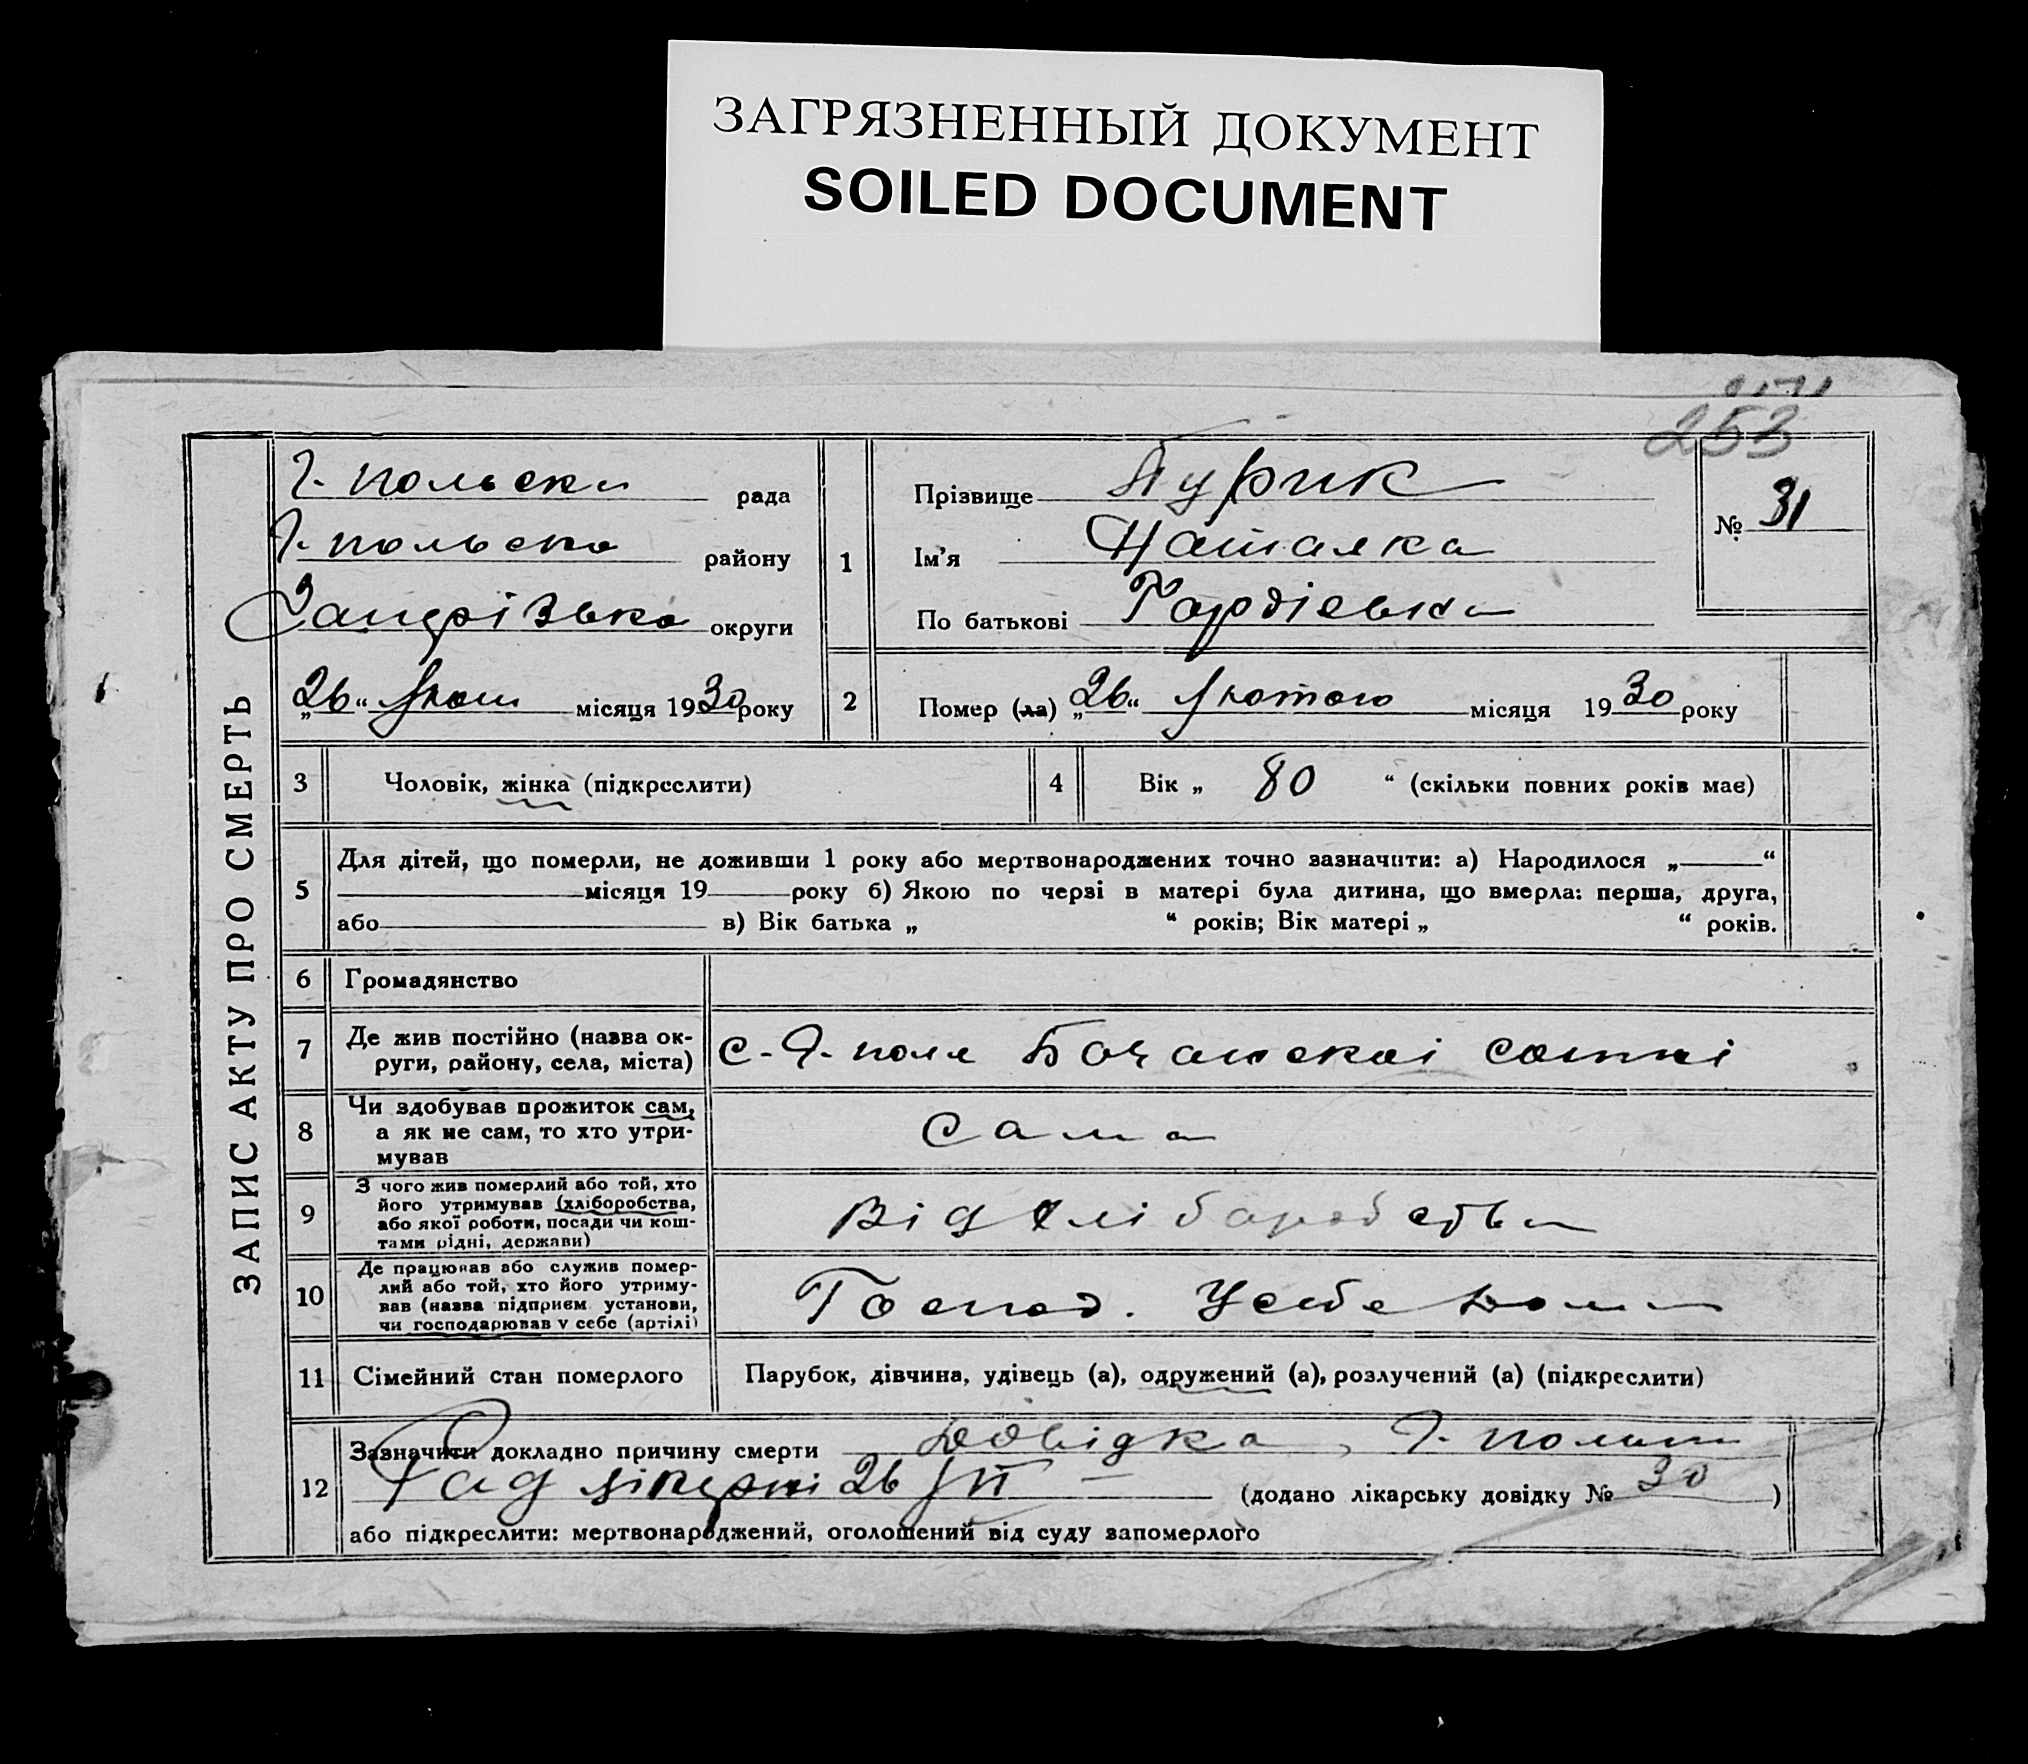 ЗАГРЯЗНЕННЫЙ ДОКУМЕНТ
SOILED DOCUMENT
253
ЗАПИС АКТУ ПРО СМЕРТЬ
рада
району
округи
„26“ місяця 1930 року
1
Прізвище
Ім’я Наталка
По батькові Гордієвна
№ 31
2 Помер (ла) „26“ Лютого місяця 1930 року
3 Чоловік, жінка (підкреслити)
4 Вік „ 80 “ (скільки повних років має)
5 Для дітей, що померли, не доживши 1 року або мертвонароджених точно зазначити: а) Народилося „ “
місяця 19 року б) Якою по черзі в матері була дитина, що вмерла: перша, друга,
або в) Вік батька „ “ років; Вік матері „ “ років.
6 Громадянство
7 Де жив постійно (назва ок-
руги, району, села, міста)
с. Г. поле сотні
8 Чи здобував прожиток сам,
а як не сам, то хто утри-
мував
Сама
9 З чого жив померлий або той, хто
його утримував (хліборобства,
або якої роботи, посади чи кош-
тами рідні, держави)
Від хліборобства
10 Де працював або служив помер-
лий або той, хто його утриму-
вав (назва підприєм. установи,
чи господарював у себе (артілі)
Господ. У себе дома
11 Сімейний стан померлого
Парубок, дівчина, удівець (а), одружений (а), розлучений (а) (підкреслити)
12 Зазначити докладно причину смерти Довідка,
Рай лікарні 26/II (додано лікарську довідку № 30 )
або підкреслити: мертвонароджений, оголошений від суду запомерлого